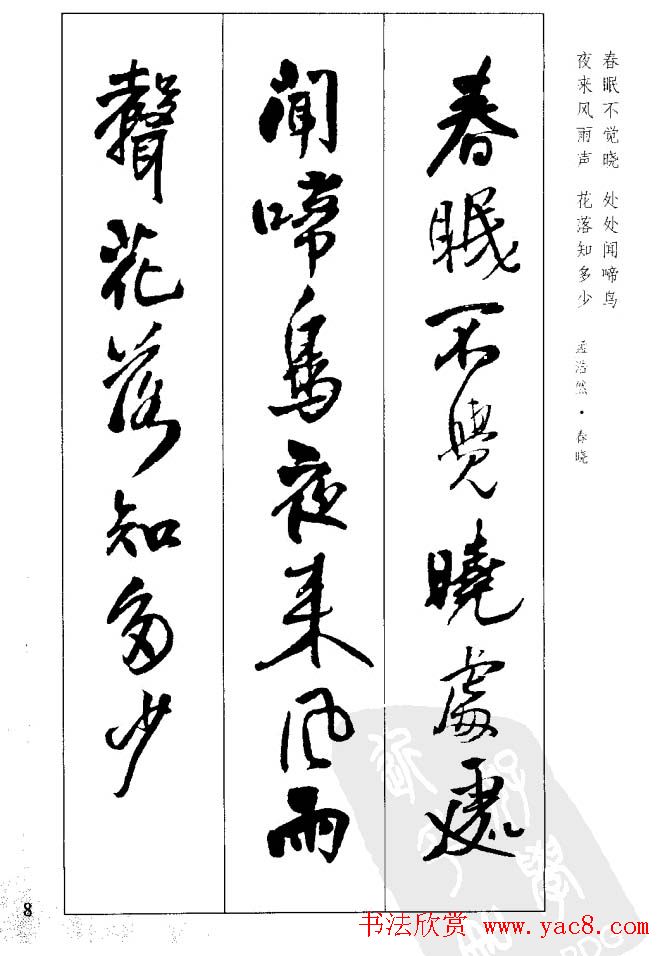 春眠不觉晓 处处闻啼鸟
夜来风雨声 花落知多少
孟浩然·春晓
春眠不覺曉處處
聞啼鳥夜来风雨
聲花落知多少
8
书法欣赏 www.yac8.com